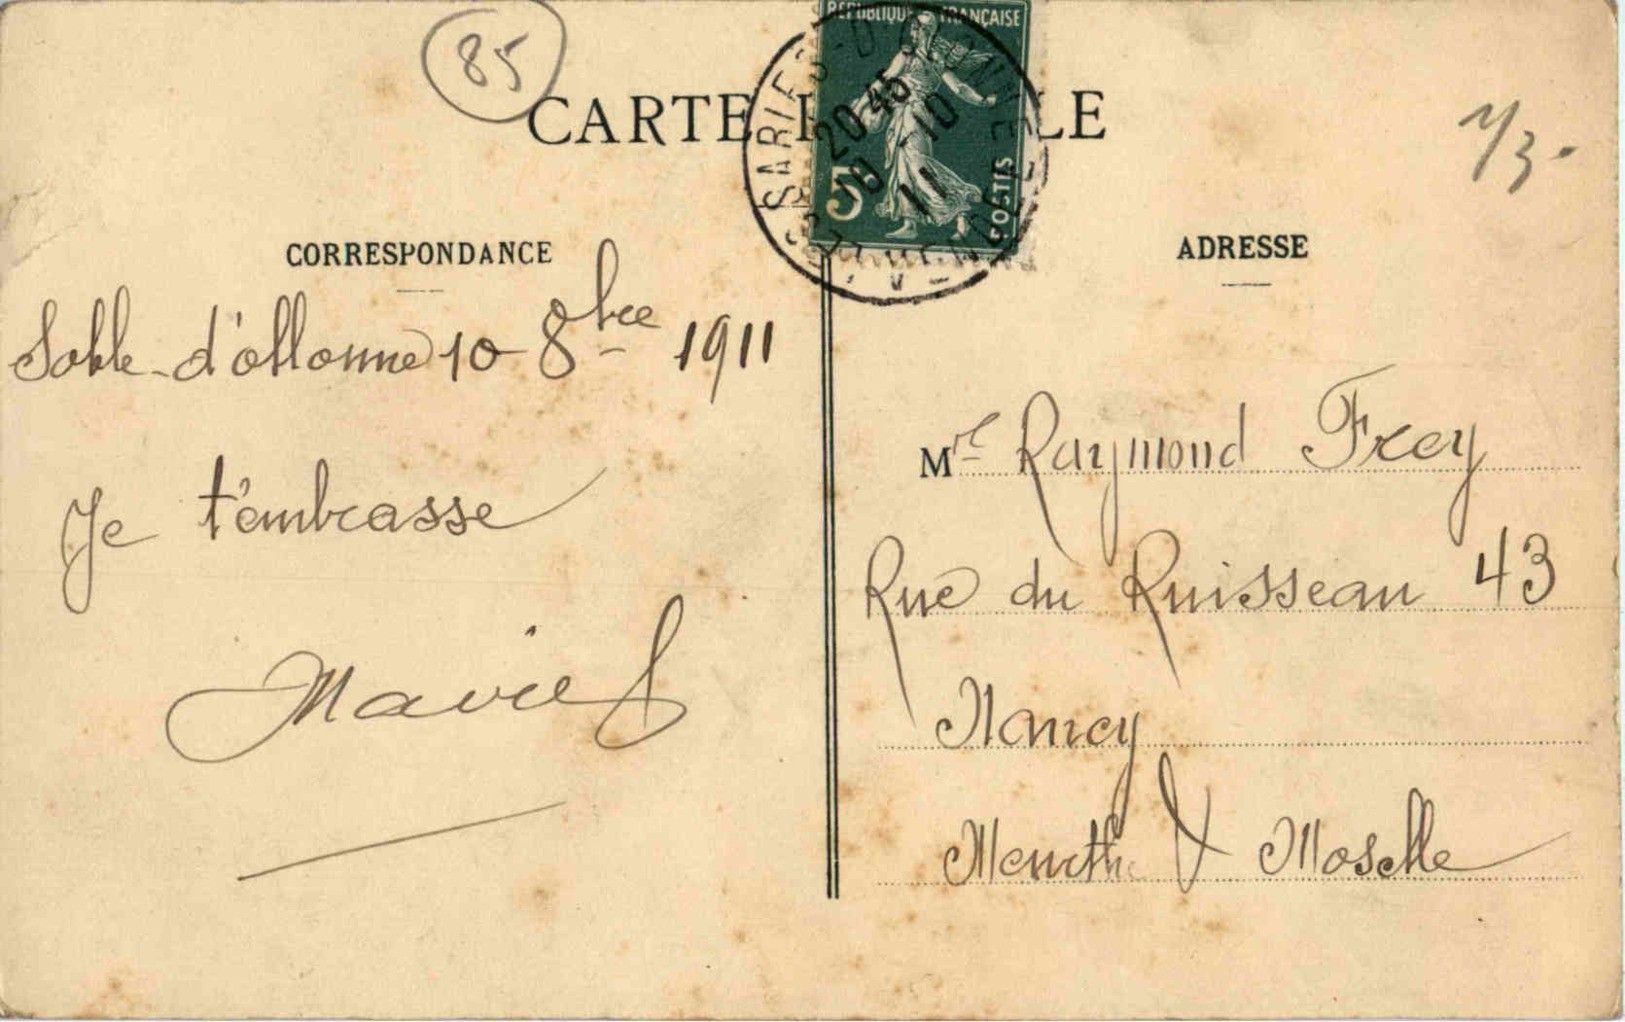 85
CARTE
LE
RÉPUBLIQUE FRANÇAISE
5
POSTES
20 45
10 -10
11
7/3.
CORRESPONDANCE
Sable-d'ollonne 10 8bre 1911
Je t'embrasse
ADRESSE
Mr Raymond Frey
Rue du Ruisseau 43
Nancy
Meurthe & Moselle